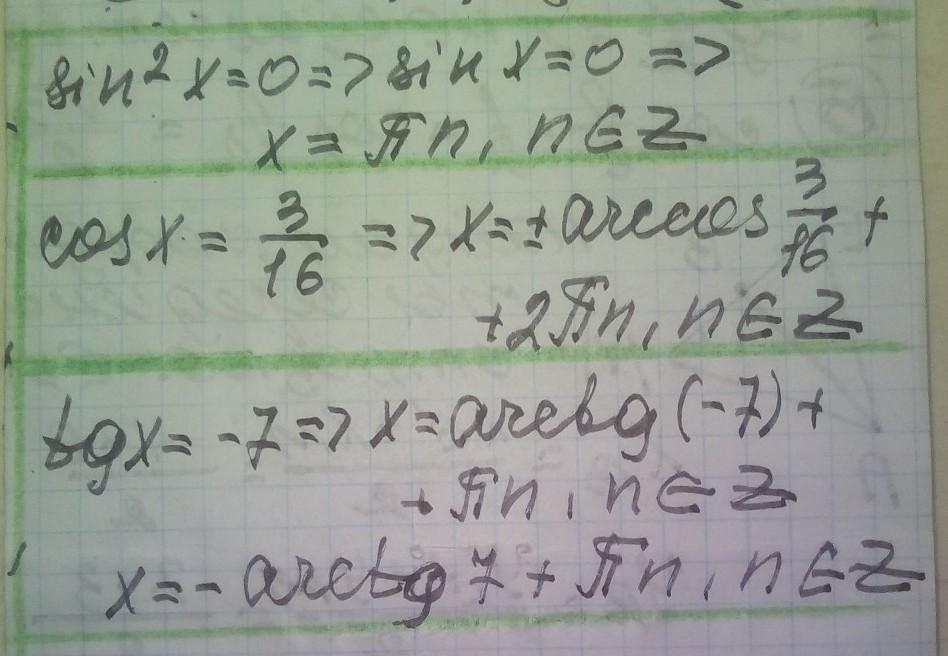 sin² x = 0 => sin x = 0 =>
x = πn, n ∈ Z
cos x = 3/16 => x = ± arccos 3/16 +
+ 2πn, n ∈ Z
tg x = -7 => x = arctg (-7) +
+ πn, n ∈ Z
x = - arctg 7 + πn, n ∈ Z